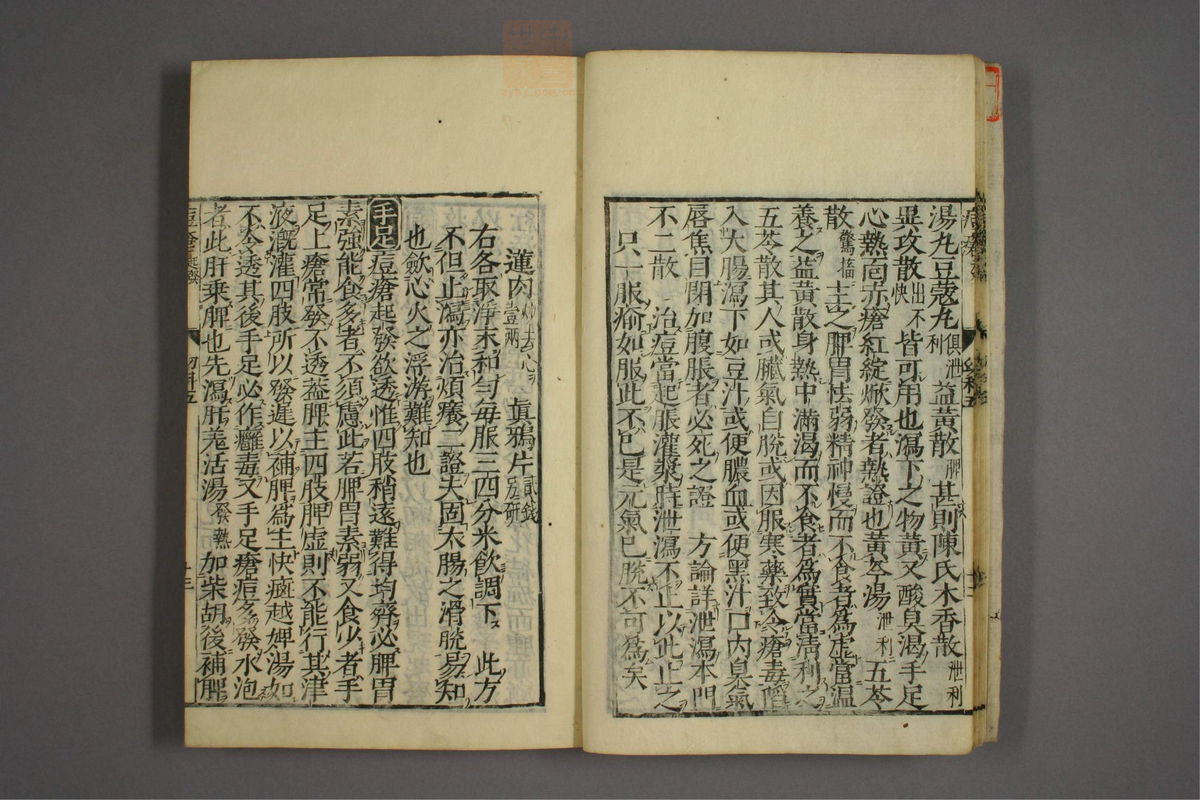 湯丸豆蔻丸俱泄利益黃散脾甚則陳氏木香散泄利
異攻散出不快皆可用也瀉下之物黃又酸臭渴手足
心熱面赤瘡紅綻焮發者熱證也黃芩湯泄利五苓
散驚搐主之脾胃怯弱精神慢而不食者爲虛當溫
養之益黃散身熱中滿渴而不食者爲實當淸利之
五苓散其人或臟氣自脫或因服寒藥致令瘡毒陷
入大腸瀉下如豆汁或便膿血或便黑汁口內臭氣
唇焦目閉加腹脹者必死之證 方論詳泄瀉本門
不二散 治痘當起脹灌漿時泄瀉不止以此止之
只一服痊如服此不已是元氣已脫不可爲矣
蓮肉炒去心壹兩 眞鴉片貳錢
右各取淨末和勻每服三四分米飮調下 此方
不但止瀉亦治煩癢二證夫固大腸之滑脫易知
也斂心火之浮游難知也
手足 痘瘡起發欲透惟四肢稍遠難得均齊必脾胃
素強能食多者不須慮此若脾胃素弱又食少者手
足上瘡常發不透蓋脾主四肢脾虛則不能行其津
液漑灌四肢所以發遲以補脾爲主快癍越婢湯如
不令透其後手足必作癰毒又手足瘡痘多發水泡
者此肝乘脾也先瀉肝羌活湯發熱加柴胡後補脾